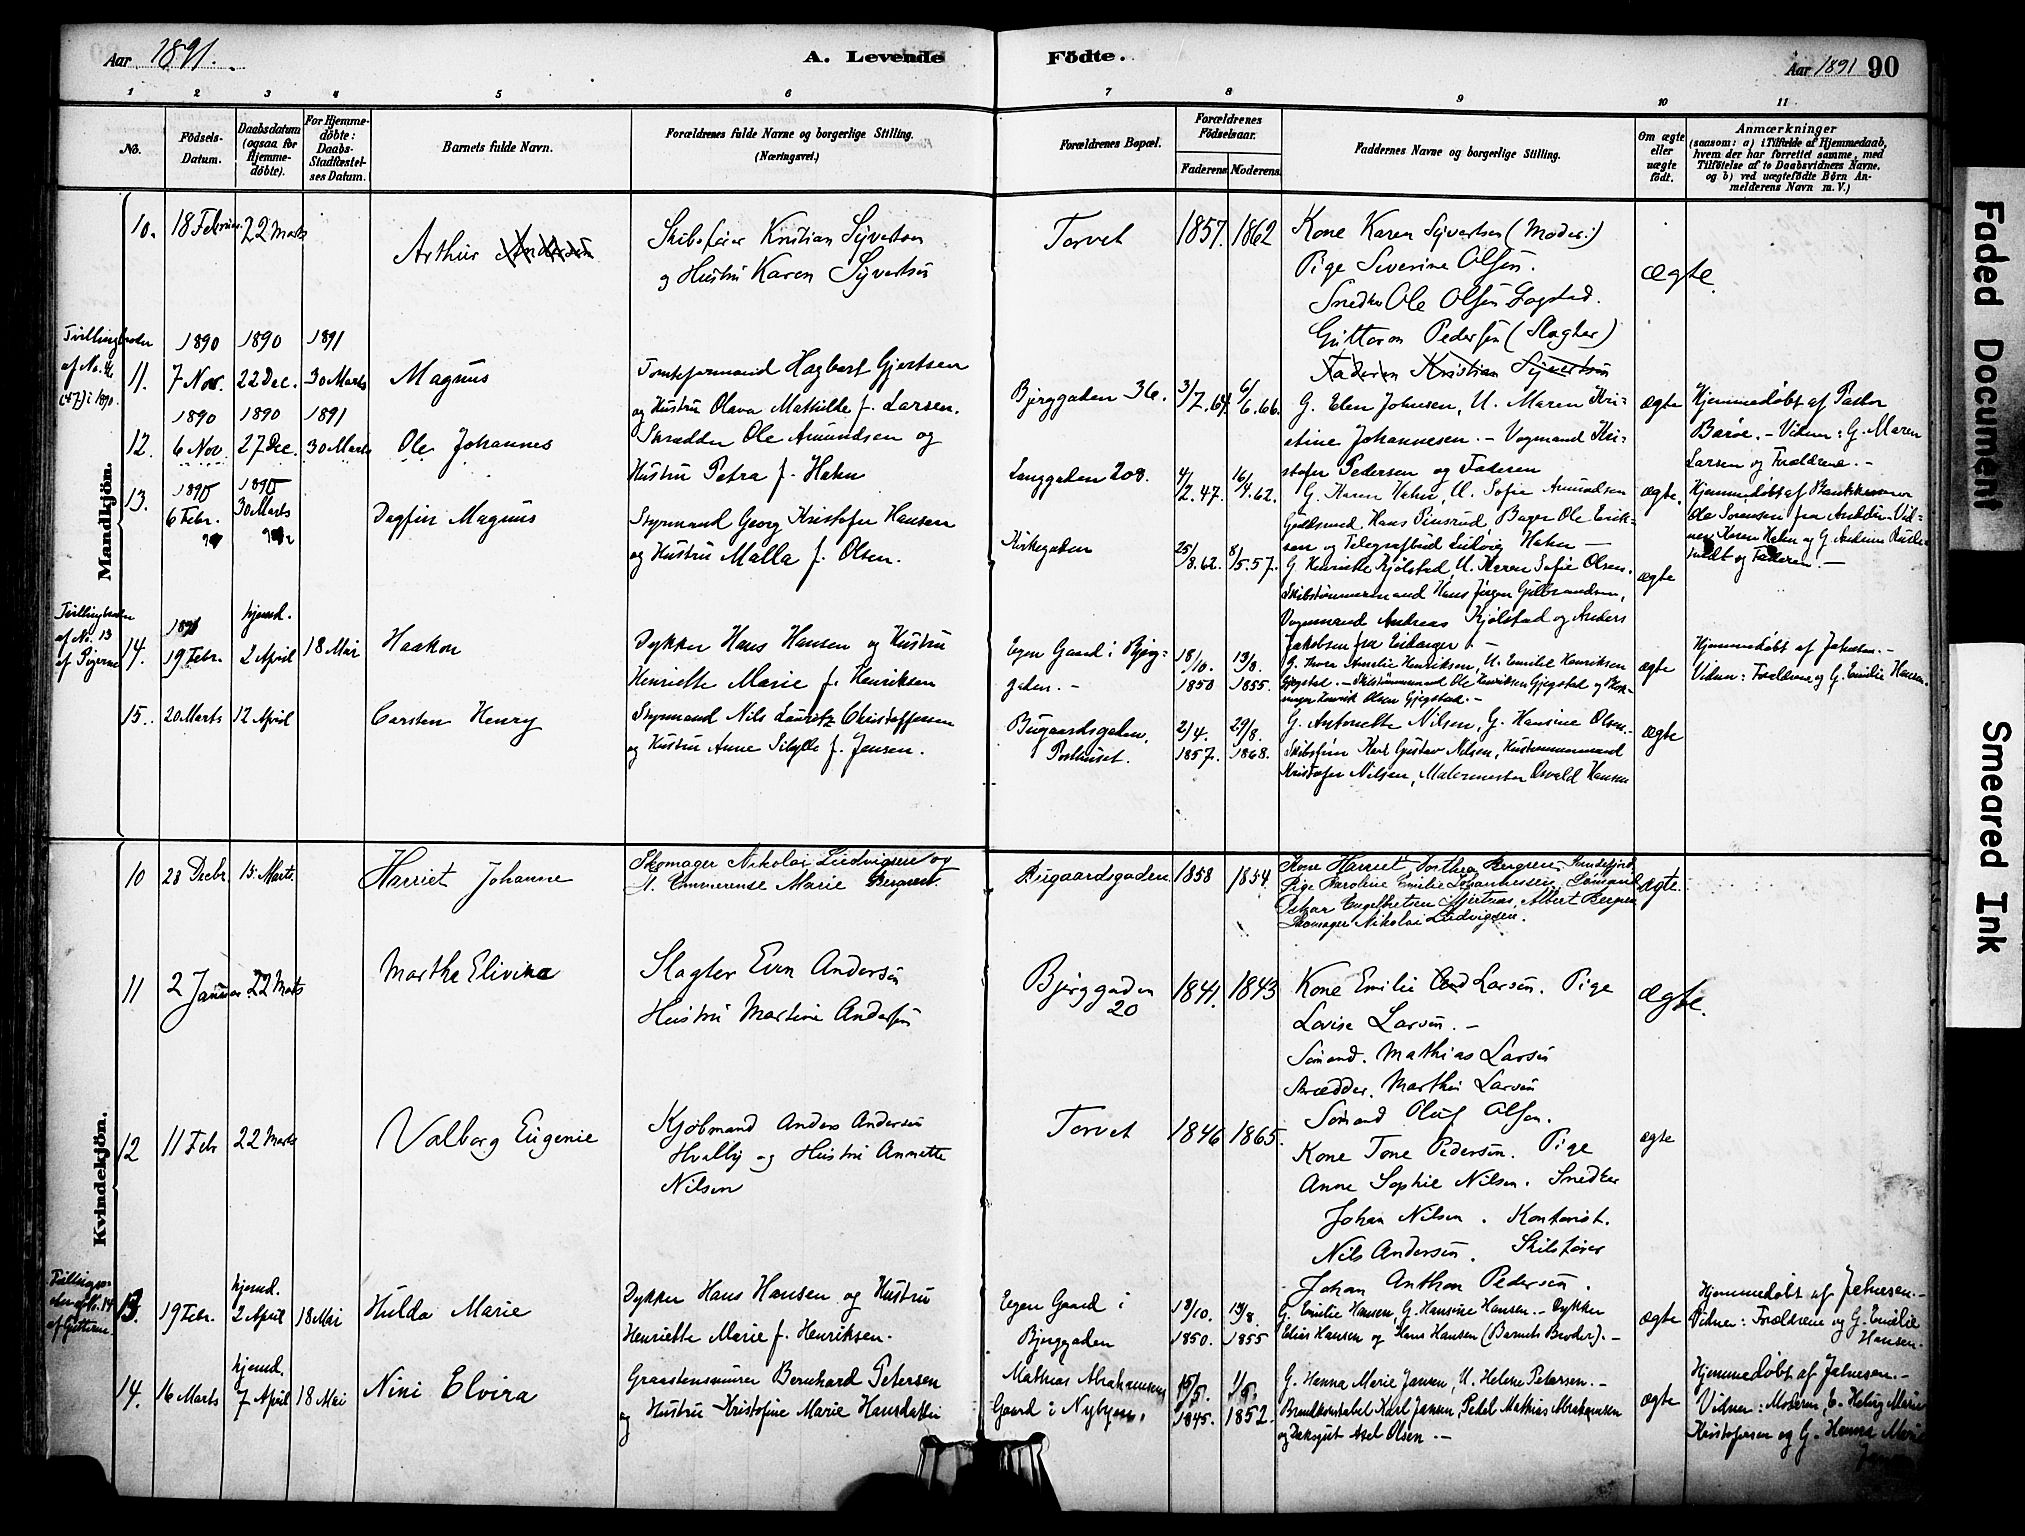 Aar 1891.
A. Levende Födte.
Aar 1891 90
1 2 3 4 5 6 7 8 9 10 11
No.
Födsels-Datum.
Daabsdatum (ogsaa for Hjemme-döbte).
For Hjemme-döbte: Daabs-Stadfæstel-ses Datum.
Barnets fulde Navn.
Forældrenes fulde Navne og borgerlige Stilling.
(Næringsvei.)
Forældrenes Bopæl.
Forældrenes Födselsaar.
Faderens Moderens
Faddernes Navne og borgerlige Stilling.
Om ægte eller uægte födt.
Anmærkninger
(saasom: a) i Tilfælde af Hjemmedaab, hvem der har forrettet samme, med Tilföielse af to Daabsvidners Navne. og b) ved uægtefödte Börn An-melderens Navn m. V.)
Mandkjön.
10. 18 Februar 22 Marts
Arthur
Skibsfører Kristian Syvertsen
og Hustru Karen Syvertsen
Torvet
1857. 1862
Kone Karen Syvertsen (Moder:)
Pige Severine Olsen.
Snedker Ole Olsen Gogstad.
Guttorm Pedersen (Slagter)
Faderen Kristian Syvertsen
ægte.
Tvillingbroder
af No. 46
(47) i 1890.
1890 1890 1891
11. 7 Nov. 22 Dec. 30 Marts
Magnus
Tomteformand Hagbart Gjertsen
og Hustru Olava Mathilde f. Larsen.
Bjerggaden 36.
3/7. 64 6/6. 66.
G. Elen Johnsen, U. Maren Kri-
stine Johannesen. - Vognmand Kri-
stofer Pedersen og Faderen
ægte
Hjemmedøbt af Pastor
Barøe. - Vidner: G. Maren
Larsen og Forældrene. -
1890 1890 1891
12. 6 Nov. 27 Dec. 30 Marts
Ole Johannes
Skrædder Ole Amundsen og
Hustru Petra f. Hahn
Langgaden 208.
4/2. 47. 16/4. 62.
G. Karen Hahn, U. Sofie Amundsen
Guldsmed Hans Pinsrud Bager Ole Erik-
sen og Telegrafbud Ludvig Hahn -
ægte.
Hjemmedøbt af
Ole Sørensen fra Vid-
ner: Karen Hahn og G. Andrine
og Faderen. -
13. 6 Febr. 30 Marts
Dagfin Magnus
Styrmand Georg Kristofer Hansen
og Hustru Malla f. Olsen.
Kirkegaden
25/8. 62. 8/5. 57.
G Henriette Kjølstad, U. Karen Sofie Olsen.
Skibstømmermand Hans Jørgen Gulbrandsen,
Vognmand Andreas Kjølstad og Anders
Jakobsen fra Eidanger -
ægte
Tvillingbroder
af No. 13
af Pigerne
1891 hjemd.
14. 19 Febr. 2 April 18 Mai
Haakon
Dykker Hans Hansen og Hustru
Henriette Marie f. Henriksen
Egen Gaard i Bjerg-
gaden. -
18/10. 13/8.
1850 1855.
G. Thora Amelie Henriksen, U. Emilie Henriksen
Gjøgstad. - Skibstømmermand Ole Henriksen Gjøgstad og
Henrik Olsen Gjøgstad. -
ægte
Hjemmedøbt af Johnsen. -
Vidner: Forældrene og G. Emilie Hansen.
15. 20 Marts 12 April
Carsten Henry
Styrmand Nils Lauritz Christoffersen
og Hustru Anne Sibylle f. Jensen.
Bugaardsgaden,
Posthuset.
2/4. 29/8.
1857. 1868.
G. Antonette Nilsen, G. Hansine Olsen. -
Skibsfører Karl Gustav Nilsen, Kustommermand
Kristofer Nilsen, Malermester Osvald Hansen
ægte
Kvindekjön.
10 28 Decbr. 15. Marts.
Harriet Johanne
Skomager Nikolai Ludvigsen og
H. Emmerense Marie Bergren.
Bugaardsgaden
1858 1854
Kone Harriet Dorthea Bergren, Sandefjord.
Pige Karoline Emilie Johannessen, Sømand
Oskar Engelbretsen Mjertnæs, Albert Bergren
Skomager Nikolai Ludvigsen.
ægte.
11 2 Januar 22 Marts
Marthe Elivine
Slagter Even Andersen
Hustru Martine Andersen
Bjerggaden
20
1841. 1843
Kone Emilie Larsen. Pige
Lovise Larsen. -
Sømand. Mathias Larsen
Skrædder. Marthin Larsen
Sømand Oluf Olsen.
ægte.
12 11 Febr 22 Marts
Valborg Eugenie
Kjøbmand Anders Andersen
Hvalby og Hustru Annette
Nilsen
Torvet
1846 1865.
Kone Tone Pedersen. Pige
Anne Sophie Nilsen. Snedker
Johan Nilsen. Kontorist.
Nils Andersen. Skibsfører
Johan Anthon Pedersen.
ægte
af No. 14
af Gutterne.
hjemd.
13. 19 Febr. 2 April 18 Mai
Hulda Marie
Dykker Hans Hansen og Hustru
Henriette Marie f. Henriksen.
Egen Gaard i
Bjerggaden
18/10. 13/8.
1850. 1855
G. Emilie Hansen, G. Hansine Hansen. - Dykker
Elias Hansen og Hans Hansen (Barnets Broder). -
ægte
Hjemmedøbt af Johnsen. -
Vidner: Forældrene og G. Emilie
Hansen.
hjemd.
14. 16 Marts 7 April 18 Mai
Nini Elvira
Graastensmurer Bernhard Petersen
og Hustru Kristofine Marie Hansdatter
Mathias Abrahamsens
Gaard i Nybyen.
15/5. 1/5.
1845. 1852.
G. Hanna Marie Jansen, U. Helene Petersen. -
Brandkonstabel Karl Jansen, Pedel Mathias Abrahamsen
og Dæksgut Axel Olsen. -
ægte
Hjemmedøbt af Johnsen. -
Vidner: Moderen, E. Helvig Marie
Kristofersen og G. Hanna Marie
Jansen
Faded Document
Smeared Ink